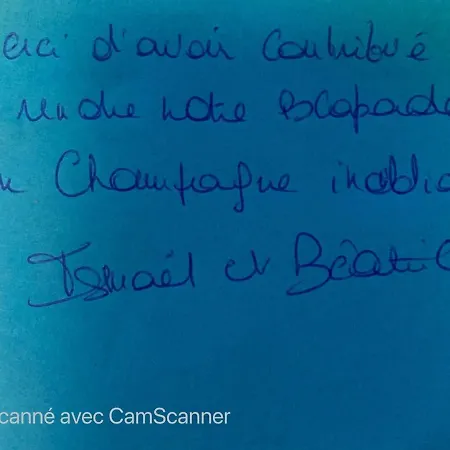 erci d'avoir contribué
rendre notre escapade
n Champagne inoublia
Ismaël et Béatric
canné avec CamScanner